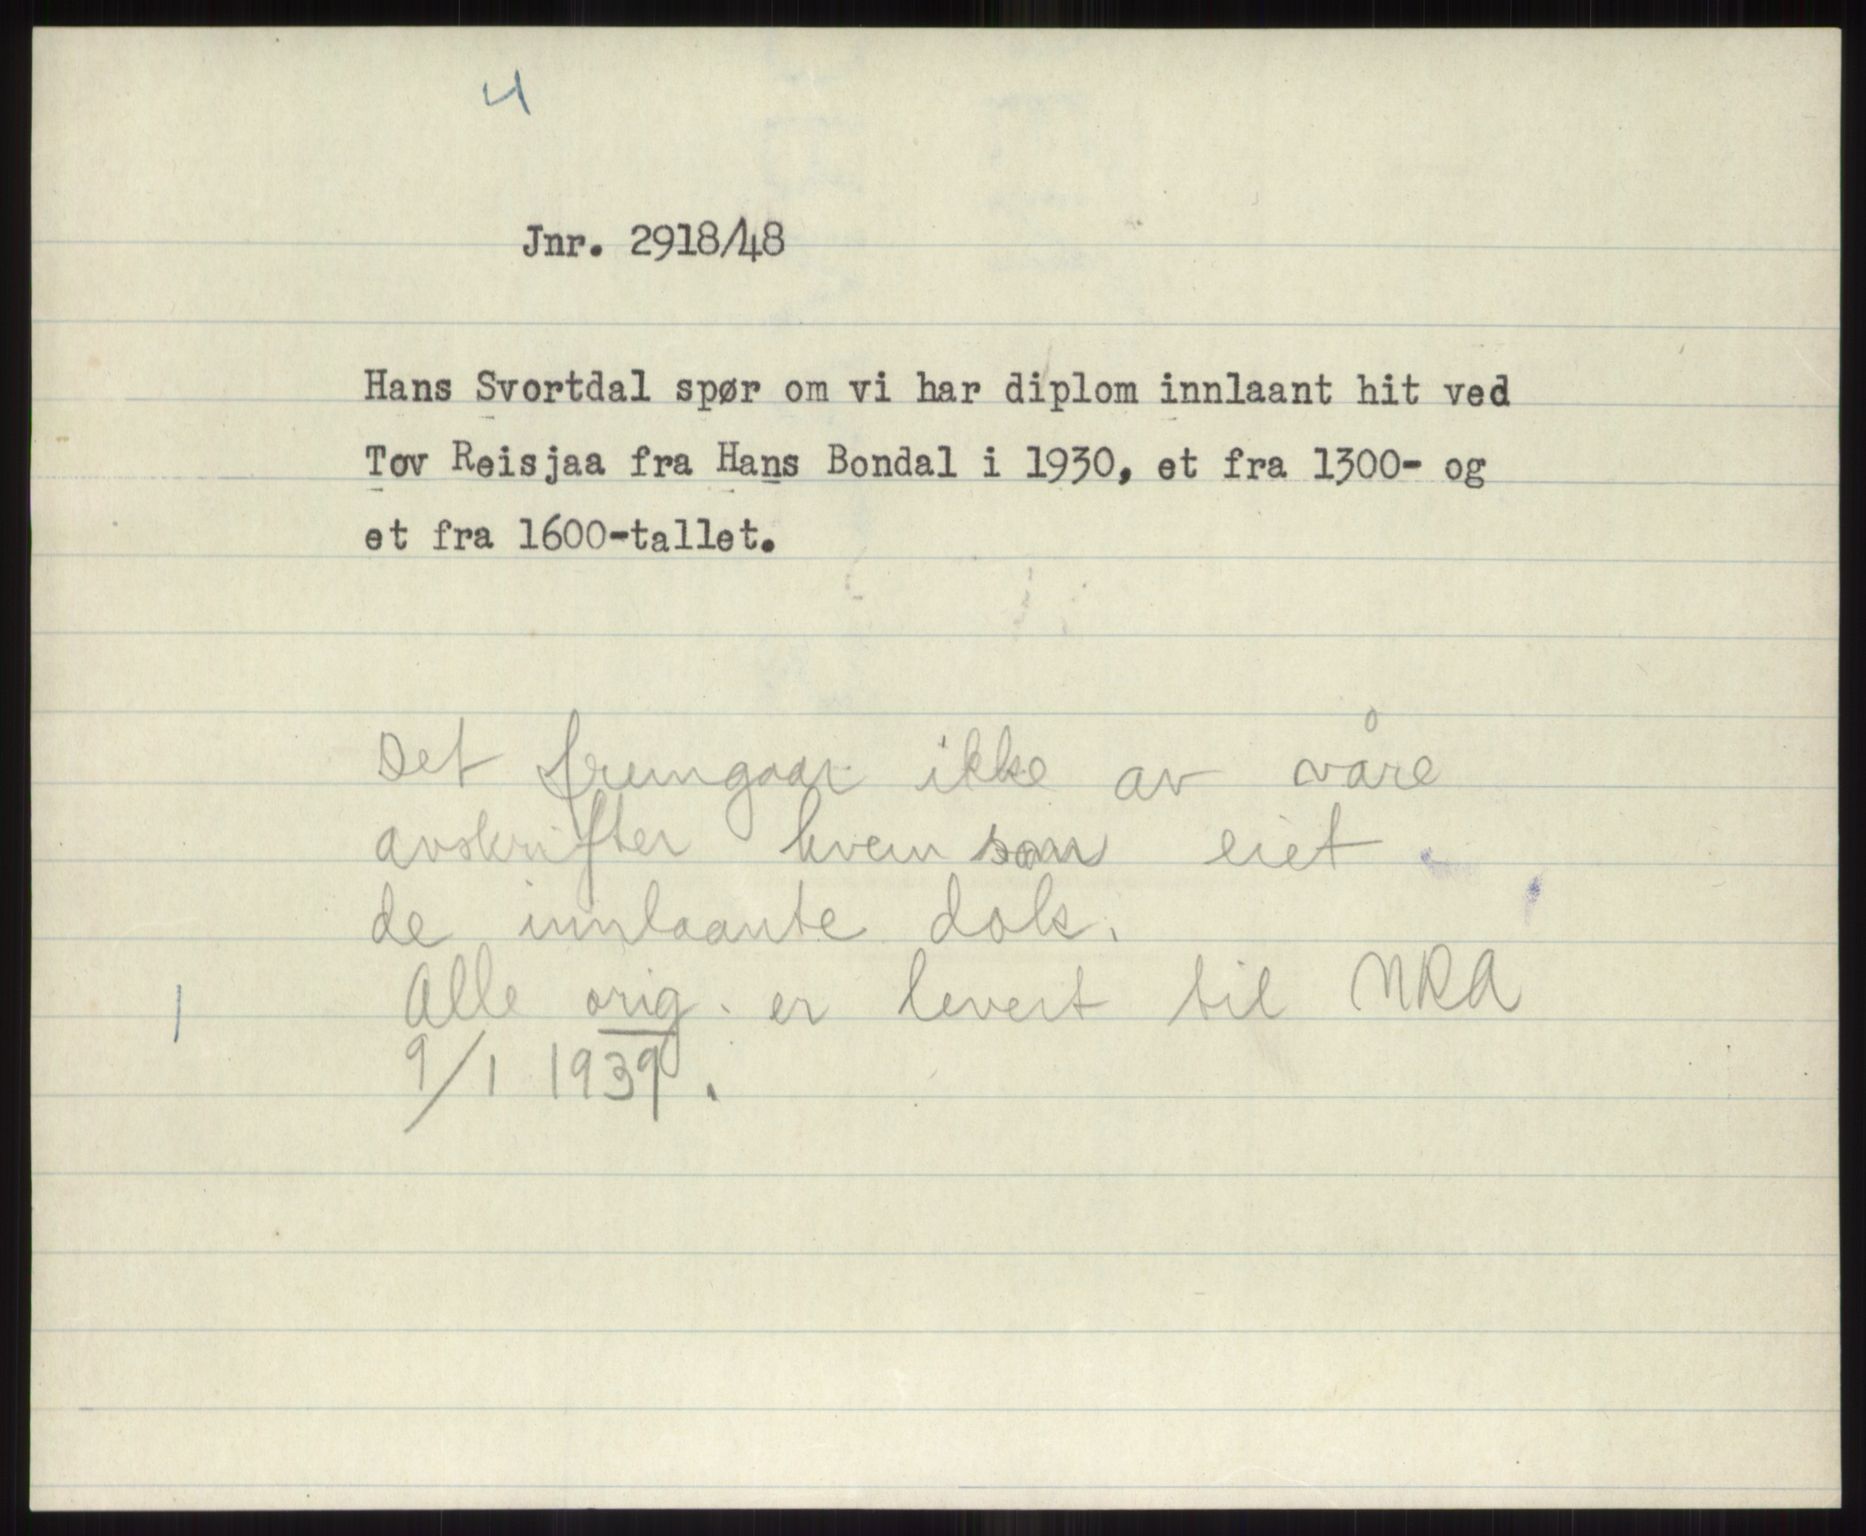 4
Jnr. 2918/48
Hans Svortdal spør om vi har diplom innlaant hit ved
Tov Reisjaa fra Hans Bondal i 1930, et fra 1300- og
et fra 1600-tallet.
Det fremgaar ikke av våre
avskrifter hvem som eiet
de innlaante dok.
Alle orig. er levert til NRA
9/1 1939.